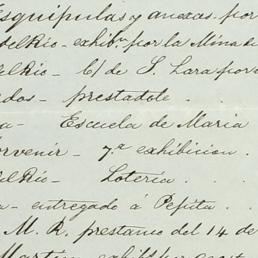 Esquipulas y anexas. por
del Rio - exhibn. por la Mina de
del Rio - C/ de S. Lara por
dos - prestadole.
a - Escuela de Maria
orvenir - 7.a exhibicion.
del Rio - Loteria.
a - entregado á Pepita.
M. R. prestamo del 14 de
Martin